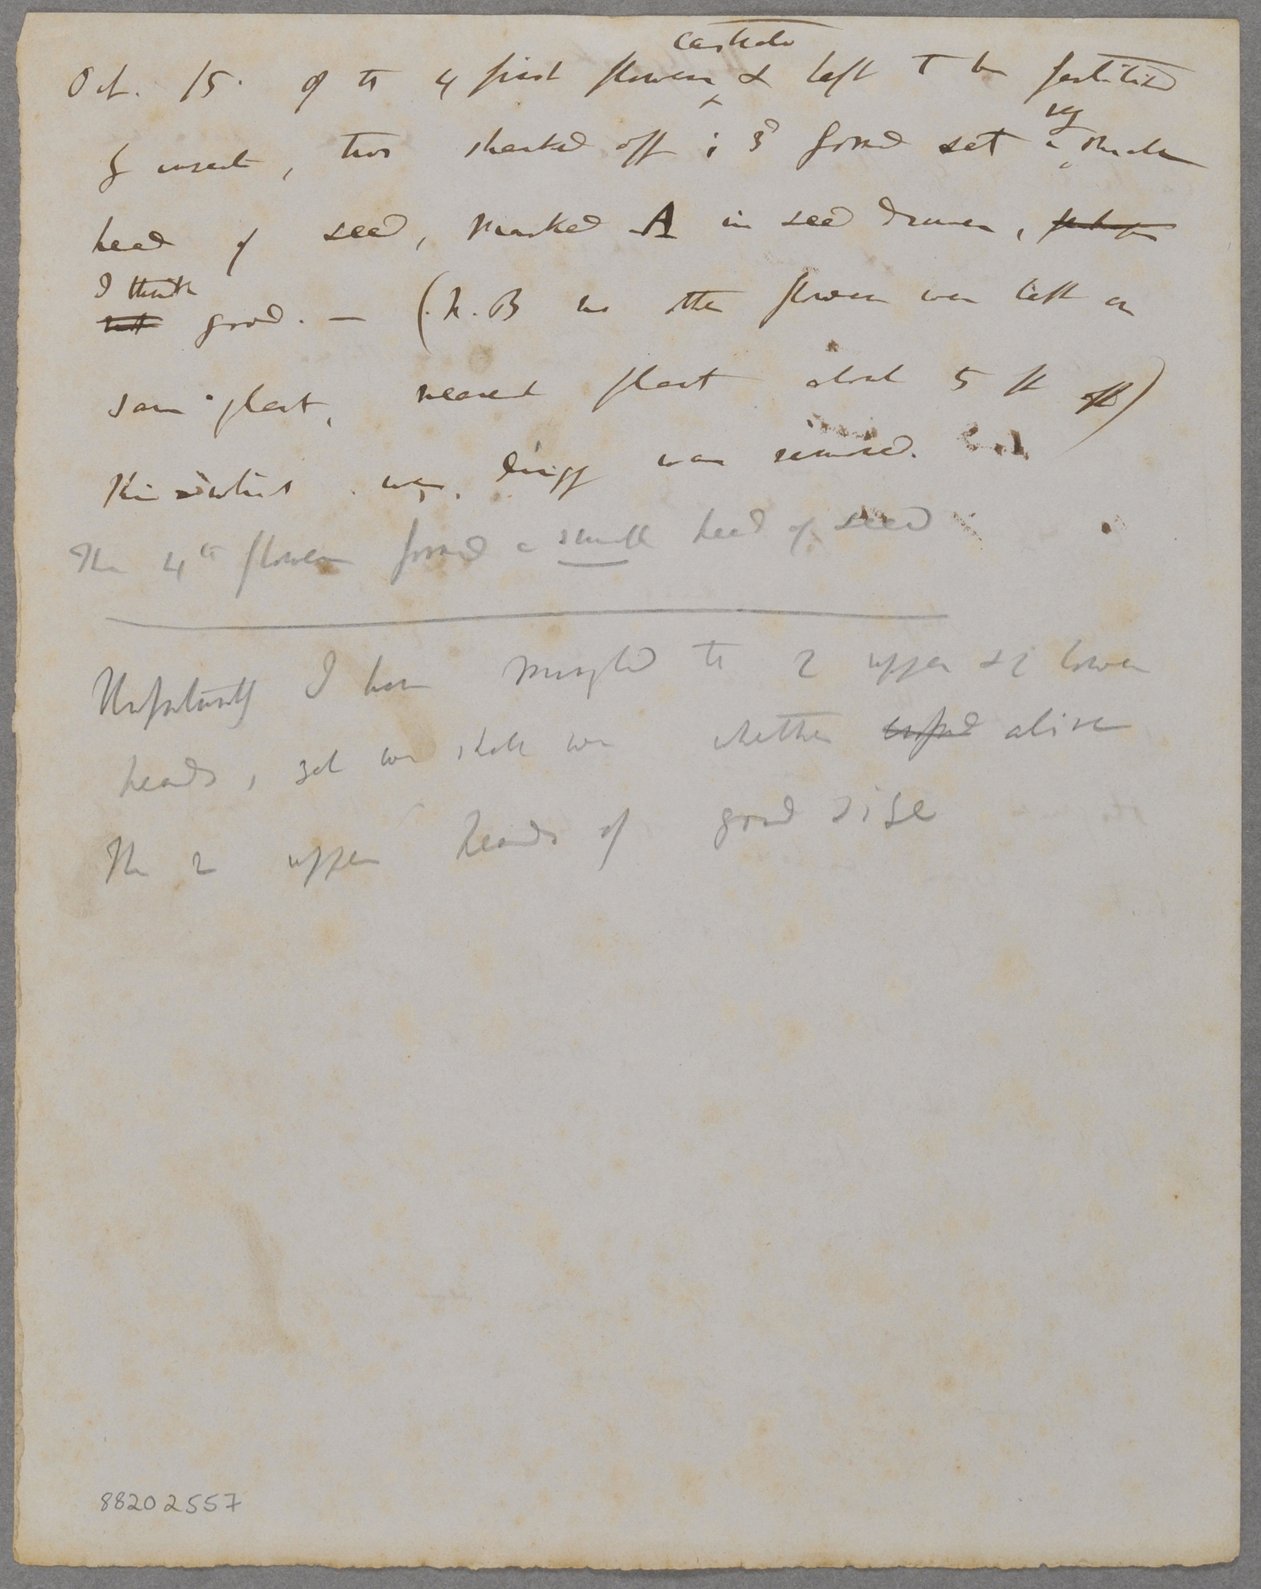 castrated
Oct. 15. Of the 4 first flowers & left to be fertilised
by insects, two shanked off; 3d formed set a very small
head of seed, marked A in seed drawer,
I think
good. — (N.B no other flowers were left on
same plant, nearest plant about 5 ft off)
was removed.
The 4th flower formed a small head of seed
Unfortunately I have muzzled the 2 upper & 2 lower
heads, yet we shall see whether alive
The 2 upper heads of good size
88202557